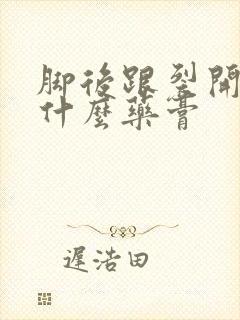 脚後跟裂開
什麼藥膏
遲浩田